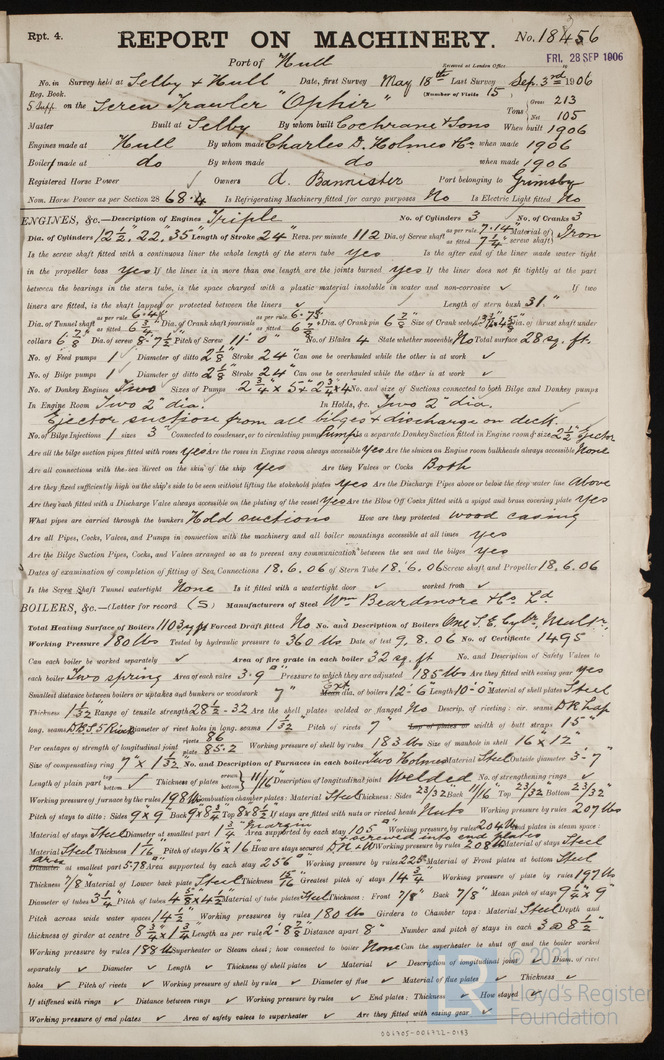 Rpt. 4. REPORT ON MACHINERY. No. 18456
Port of Hull FRI. 28 SEP 1906
Received at London Office
No. in Survey held at Selby & Hull Date, first Survey May 18th Last Survey Sep. 3rd 1906
Reg. Book. (Number of Visits 15)
5 Supp on the Screw Trawler "Ophir" Tons Gross 213 Net 105
Master Built at Selby By whom built Cochrane & Sons When built 1906
Engines made at Hull By whom made Charles D. Holmes & Co when made 1906
Boiler made at do By whom made do when made 1906
Registered Horse Power Owners A. Bannister Port belonging to Grimsby
Nom. Horse Power as per Section 28 68.4 Is Refrigerating Machinery fitted for cargo purposes No Is Electric Light fitted No
ENGINES, &c.—Description of Engines Triple No. of Cylinders 3 No. of Cranks 3
Dia. of Cylinders 12½", 22", 35" Length of Stroke 24" Revs. per minute 112 Dia. of Screw shaft as per rule 7.14" as fitted 7¼" Material of screw shaft Iron
Is the screw shaft fitted with a continuous liner the whole length of the stern tube yes Is the after end of the liner made water tight
in the propeller boss yes If the liner is in more than one length are the joints burned yes If the liner does not fit tightly at the part
between the bearings in the stern tube, is the space charged with a plastic material insoluble in water and non-corrosive ✓ If two
liners are fitted, is the shaft lapped or protected between the liners ✓ Length of stern bush 31"
Dia. of Tunnel shaft as per rule as fitted Dia. of Crank shaft journals as per rule as fitted Dia. of Crank pin 6⅞ Size of Crank webs Dia. of thrust shaft under
collars 6⅞ Dia. of screw 8-7½ Pitch of Screw 11'-0" No. of Blades 4 State whether moveable No Total surface 28 sq. ft.
No. of Feed pumps 1 Diameter of ditto 2⅛ Stroke 24" Can one be overhauled while the other is at work ✓
No. of Bilge pumps 1 Diameter of ditto 2⅛ Stroke 24" Can one be overhauled while the other is at work ✓
No. of Donkey Engines Two Sizes of Pumps 2¾" x 5 & 2¾ x 4 No. and size of Suctions connected to both Bilge and Donkey pumps
In Engine Room Two 2" dia. In Holds, &c. Two 2" dia.
Ejector suction from all bilges & discharge on deck.
No. of Bilge Injections 1 sizes 3" Connected to condenser, or to circulating pump Pump Is a separate Donkey Suction fitted in Engine room & size 2½" Ejector
Are all the bilge suction pipes fitted with roses yes Are the roses in Engine room always accessible yes Are the sluices on Engine room bulkheads always accessible None
Are all connections with the sea direct on the skin of the ship yes Are they Valves or Cocks Both
Are they fixed sufficiently high on the ship's side to be seen without lifting the stokehold plates yes Are the Discharge Pipes above or below the deep water line Above
Are they each fitted with a Discharge Valve always accessible on the plating of the vessel yes Are the Blow Off Cocks fitted with a spigot and brass covering plate yes
What pipes are carried through the bunkers Hold suctions How are they protected wood casing
Are all Pipes, Cocks, Valves, and Pumps in connection with the machinery and all boiler mountings accessible at all times yes
Are the Bilge Suction Pipes, Cocks, and Valves arranged so as to prevent any communication between the sea and the bilges yes
Dates of examination of completion of fitting of Sea Connections 18.6.06 of Stern Tube 18.6.06 Screw shaft and Propeller 18.6.06
Is the Screw Shaft Tunnel watertight None Is it fitted with a watertight door ✓ worked from ✓
BOILERS, &c.—(Letter for record (S)) Manufacturers of Steel Wm Beardmore & Co Ld
Total Heating Surface of Boilers 1103 sq ft Forced Draft fitted No No. and Description of Boilers One S. E. Cylr. Multr.
Working Pressure 180 lbs Tested by hydraulic pressure to 360 lbs Date of test 9.8.06 No. of Certificate 1495
Can each boiler be worked separately ✓ Area of fire grate in each boiler 32 sq. ft No. and Description of Safety Valves to
each boiler Two spring Area of each valve 3.9" Pressure to which they are adjusted 185 lbs Are they fitted with easing gear yes
Smallest distance between boilers or uptakes and bunkers or woodwork 7" Ext. dia. of boilers 12'-6" Length 10'-0" Material of shell plates Steel
Thickness 1 1/32 Range of tensile strength 28½-32 Are the shell plates welded or flanged No Descrip. of riveting: cir. seams D.R. Lap
long. seams D.B.S. 5 Rivet Diameter of rivet holes in long. seams 1 1/32 Pitch of rivets 7" Lap of plates or width of butt straps 15"
Per centages of strength of longitudinal joint rivets 86 plate 85.2 Working pressure of shell by rules 183 lbs Size of manhole in shell 16" x 12"
Size of compensating ring 7" x 1 5/32" No. and Description of Furnaces in each boiler Two Holmes Material Steel Outside diameter 3'-7"
Length of plain part top bottom ✓ Thickness of plates crown bottom 11/16" Description of longitudinal joint Welded No. of strengthening rings ✓
Working pressure of furnace by the rules 198 lbs Combustion chamber plates: Material Steel Thickness: Sides 23/32 Back 11/16" Top 23/32" Bottom 23/32"
Pitch of stays to ditto: Sides 9" x 9" Back 9" x 8¾" Top 8 x 8½" If stays are fitted with nuts or riveted heads Nuts Working pressure by rules 207 lbs
Material of stays Steel Diameter at smallest part 1¾" Area supported by each stay 105" Working pressure by rules 204 lbs End plates in steam space:
Material Steel Thickness 1 1/16" Pitch of stays 16 x 16 How are stays secured D.N. & W Working pressure by rules 208 lbs Material of stays Steel
area Diameter at smallest part 5.78" Area supported by each stay 256" Working pressure by rules 225 lbs Material of Front plates at bottom Steel
Thickness 7/8" Material of Lower back plate Steel Thickness 15/16 Greatest pitch of stays 14¾" Working pressure of plate by rules 197 lbs
Diameter of tubes 3¼" Pitch of tubes 4⅝ x 4½" Material of tube plates Steel Thickness: Front 7/8" Back 7/8" Mean pitch of stays 9¼" x 9"
Pitch across wide water spaces 14½" Working pressures by rules 180 lbs Girders to Chamber tops: Material Steel Depth and
thickness of girder at centre 8¾" x 1¾ Length as per rule 2'-8⅞ Distance apart 8" Number and pitch of stays in each 3 @ 8½"
Working pressure by rules 188 lbs Superheater or Steam chest; how connected to boiler None Can the superheater be shut off and the boiler worked
separately ✓ Diameter ✓ Length ✓ Thickness of shell plates ✓ Material ✓ Description of longitudinal joint ✓ Diam. of rivet
holes ✓ Pitch of rivets ✓ Working pressure of shell by rules ✓ Diameter of flue ✓ Material of flue plates ✓ Thickness ✓
If stiffened with rings ✓ Distance between rings ✓ Working pressure by rules ✓ End plates: Thickness ✓ How stayed ✓
Working pressure of end plates ✓ Area of safety valves to superheater ✓ Are they fitted with easing gear ✓
© 2021
Lloyd's Register
Foundation
004705-004722-0193